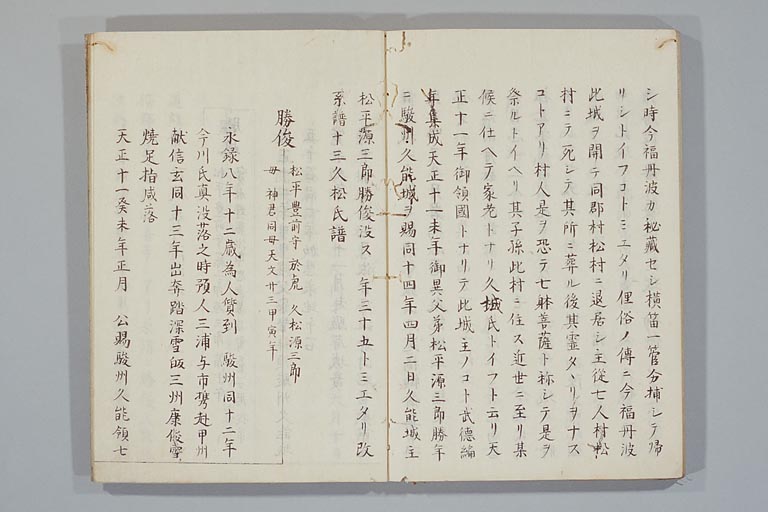 シ時今福丹波カ秘藏セシ横笛一管分捕シテ帰
リシトイフコトミエタリ俚俗ノ傳ニ今福丹波
此城ヲ開テ同郡村松村ニ退居シ主從七人村松
村ニテ死シテ其所ニ葬ル後其霊タヽリヲナス
コトアリ村人是ヲ恐テ七躰菩薩ト称シテ是ヲ
祭ルトイヘリ其子孫此村ニ住ス近世ニ至リ某
候ニ仕ヘテ家老トナリ久城氏トイフト云リ天
正十一年御領國トナリテ此城主ノコト武德編
年集成天正十一未年御異父弟松平源三郎勝年
ニ駿州久能城ヲ賜同十四年四月二日久能城主
松平源三郎勝俊没ス年三十五トミエタリ改
系譜十三久松氏譜
勝俊
松平豊前守 於虎 久松源三郎
母 神君同母天文廿三甲寅年
永録八年十二歳為人質到 駿州同十二年
今川氏真没落之時預人三浦与市携赴甲州
献信玄同十三年出奔踏深雪皈三州康俊雪
焼足指咸落
天正十一癸未年正月 公賜駿州久能領七